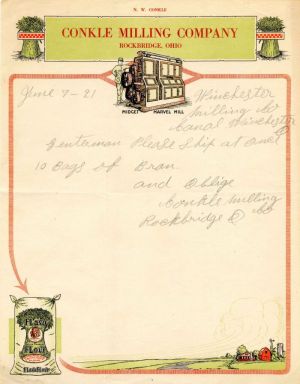 N. W. CONKLE
CONKLE MILLING COMPANY
ROCKBRIDGE, OHIO
June 7-21
Winchester
Milling Co
Canal Winchester
MIDGET MARVEL MILL
Gentleman Please Ship at once
10 Bags of Bran
and Oblige
Conkle Milling
Rockbridge O Co
FLOUR